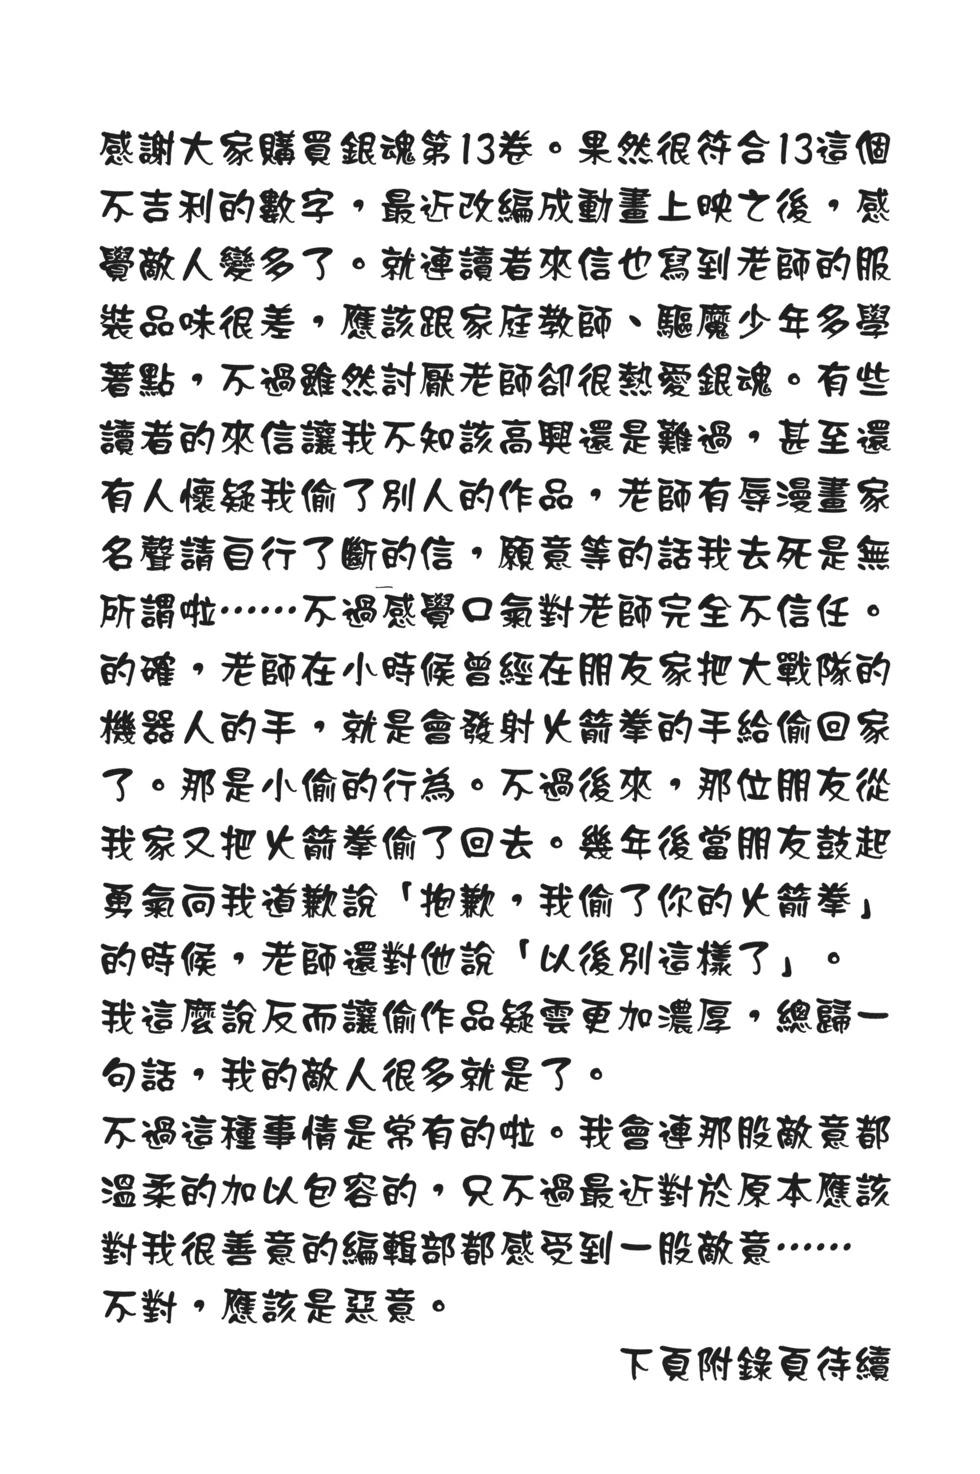 感謝大家購買銀魂第13卷。果然很符合13這個
不吉利的數字，最近改編成動畫上映之後，感
覺敵人變多了。就連讀者來信也寫到老師的服
裝品味很差，應該跟家庭教師、驅魔少年多學
著點，不過雖然討厭老師卻很熱愛銀魂。有些
讀者的來信讓我不知該高興還是難過，甚至還
有人懷疑我偷了別人的作品，老師有辱漫畫家
名聲請自行了斷的信，願意等的話我去死是無
所謂啦……不過感覺口氣對老師完全不信任。
的確，老師在小時候曾經在朋友家把大戰隊的
機器人的手，就是會發射火箭拳的手給偷回家
了。那是小偷的行為。不過後來，那位朋友從
我家又把火箭拳偷了回去。幾年後當朋友鼓起
勇氣向我道歉說「抱歉，我偷了你的火箭拳」
的時候，老師還對他說「以後別這樣了」。
我這麼說反而讓偷作品疑雲更加濃厚，總歸一
句話，我的敵人很多就是了。
不過這種事情是常有的啦。我會連那股敵意都
溫柔的加以包容的，只不過最近對於原本應該
對我很善意的編輯部都感受到一股敵意……
不對，應該是惡意。
下頁附錄頁待續